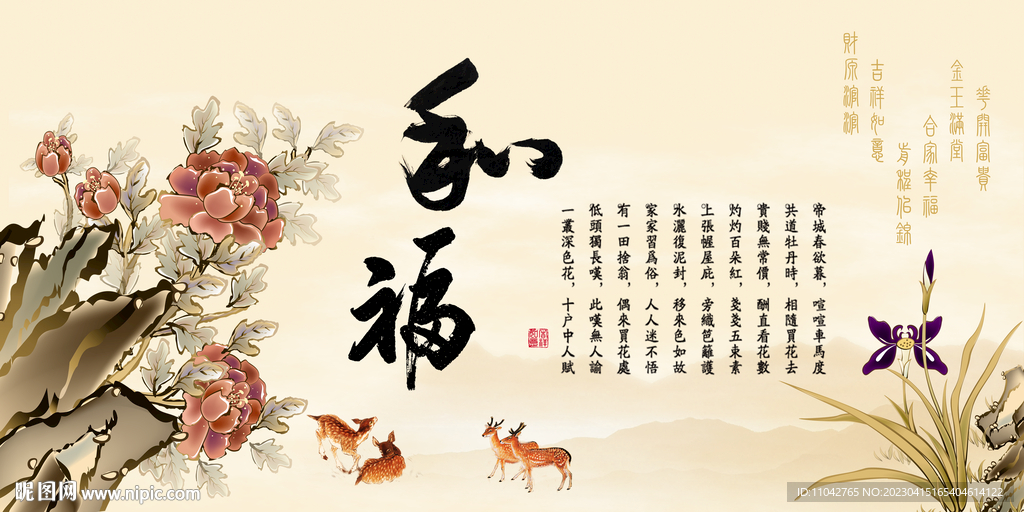 和福
華開富貴
金玉滿堂
合家幸福
前程佀錦
吉祥如意
財原滾滾
帝城春欲暮，喧喧車馬度
共道牡丹時，相隨買花去
貴賤無常價，酬直看花數
灼灼百朵紅，戔戔五束素
上張幄屋庇，旁織笆籬護
水灑復泥封，移来色如故
家家習爲俗，人人迷不悟
有一田捨翁，偶来買花處
低頭獨長嘆，此嘆無人諭
一叢深色花，十户中人賦
昵图网 www.nipic.com
ID:11042765 NO:20230415165404614122